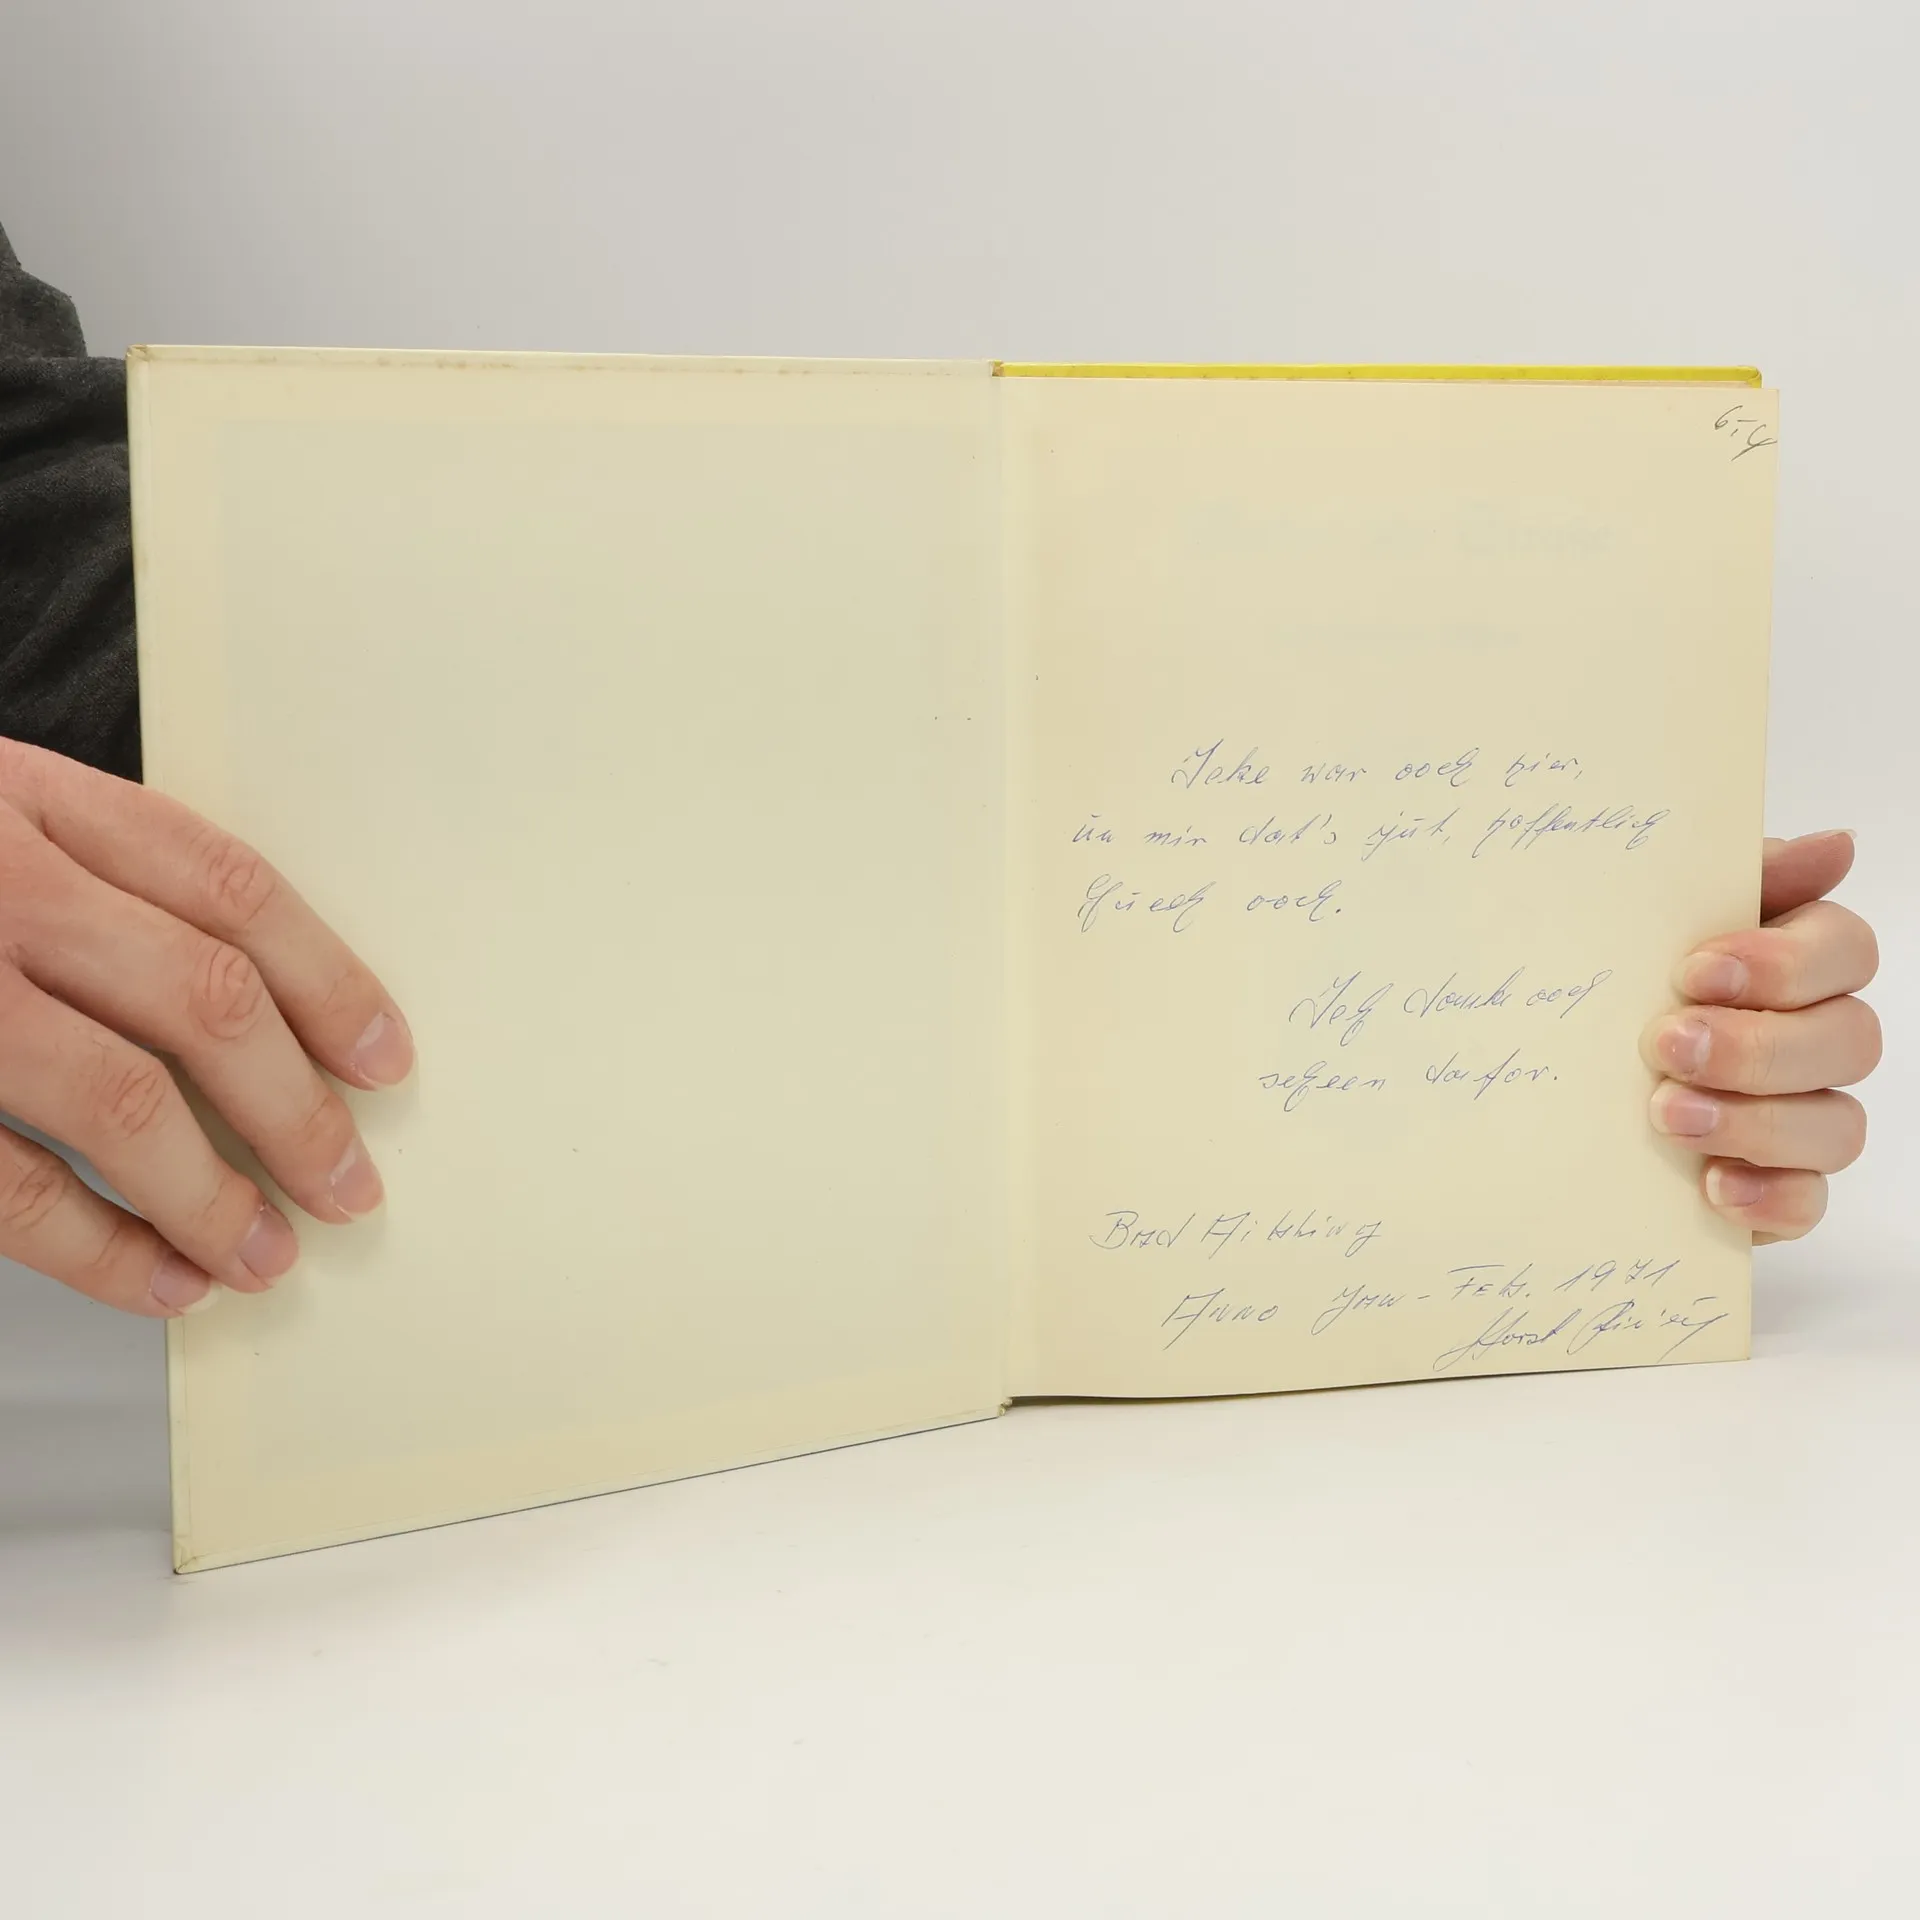 6,-
Icke war ooch hier,
un mir dat's jut, hoffentlich
Euech ooch.
Ich danke ooch
scheen dafor.
Bad Aibling
Anno Jan - Feb. 1971
Horst